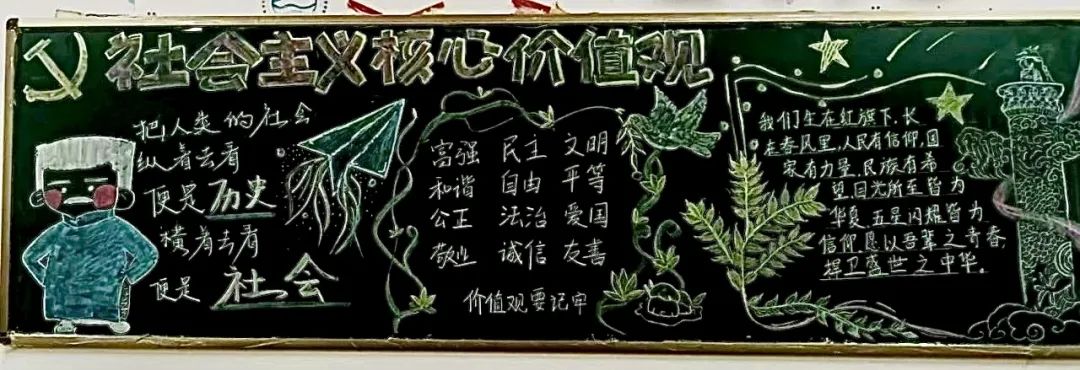 社会主义核心价值观
把人类的社会
纵着去看
便是历史
横着去看
便是社会
富强 民主 文明
和谐 自由 平等
公正 法治 爱国
敬业 诚信 友善
价值观要记牢
我们生在红旗下,长
在春风里,人民有信仰,国
家有力量,民族有希
望,目光所至皆为
华夏,五星闪耀皆为
信仰,愿以吾辈之青春
捍卫盛世之中华。